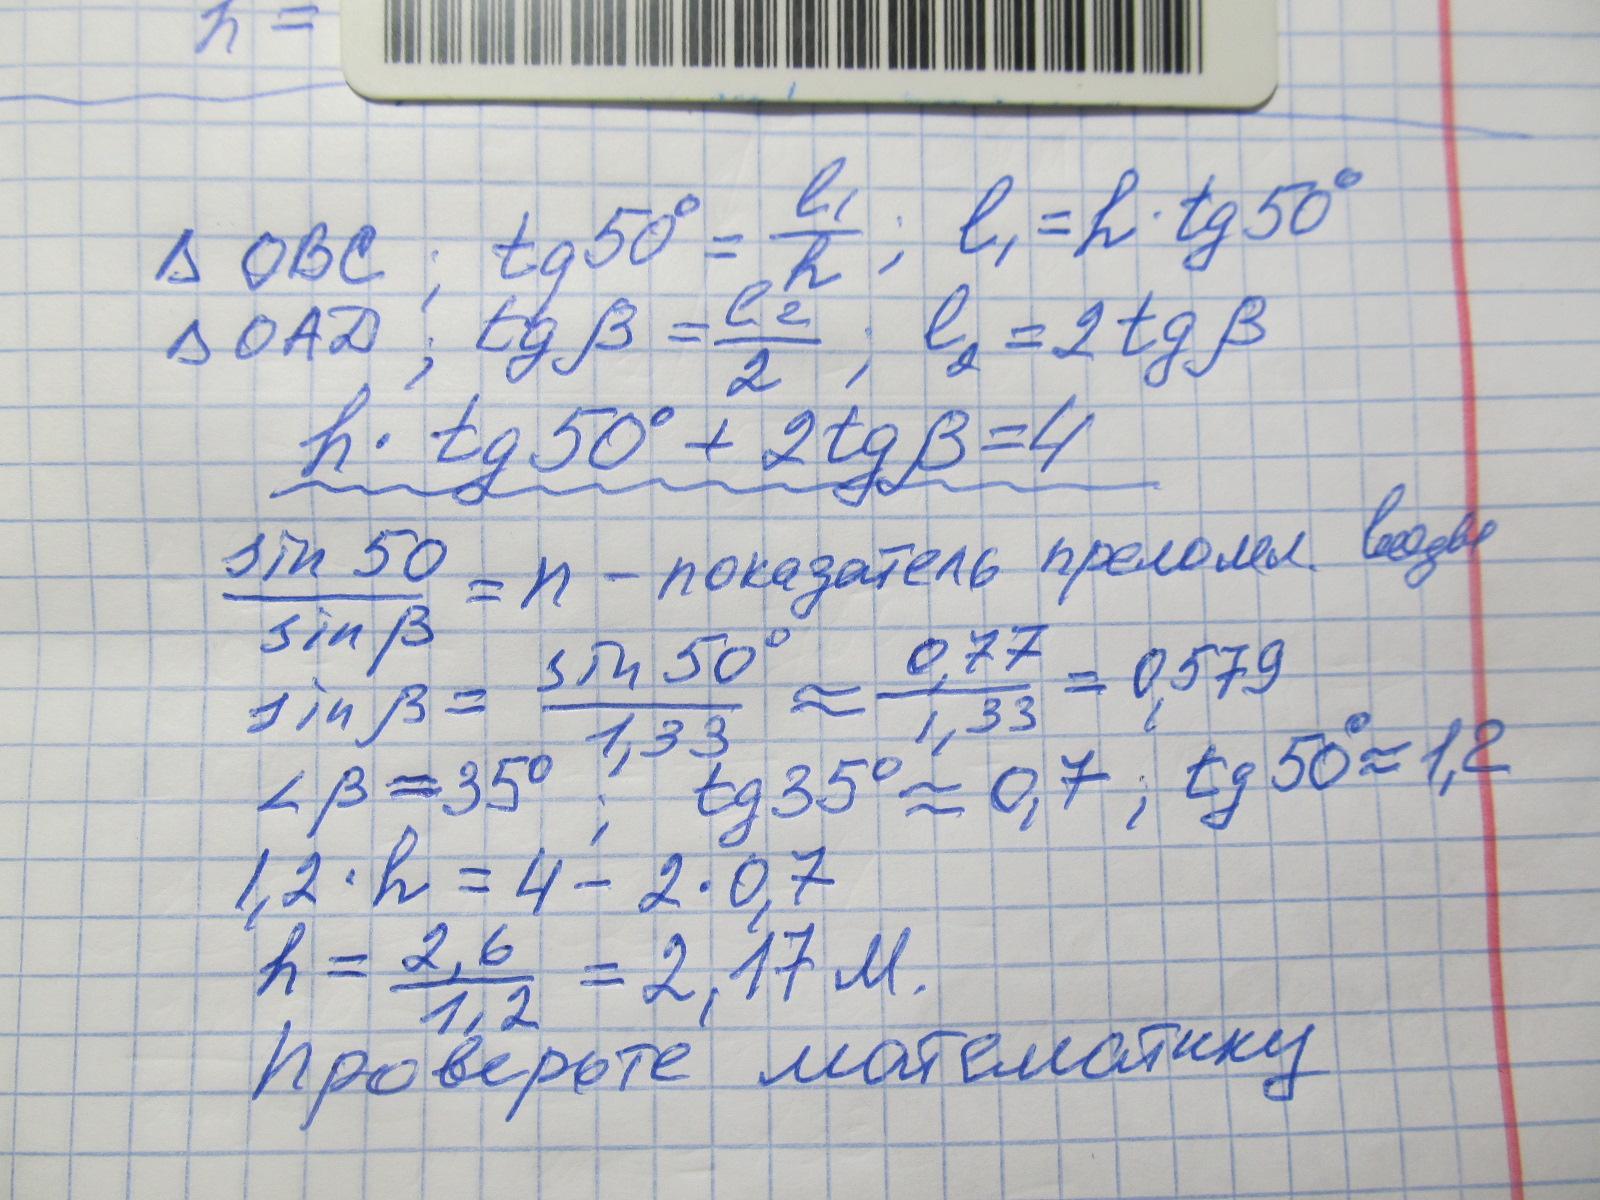 h =
Δ OBC ; tg 50° = l₁/h ; l₁ = h · tg 50°
Δ OAD ; tg β = l₂/2 ; l₂ = 2 tg β
h · tg 50° + 2 tg β = 4
sin 50/sin β = n – показатель преломл.
sin β = sin 50°/1,33 ≈ 0,77/1,33 = 0,579
∠ β = 35° ; tg 35° ≈ 0,7 ; tg 50° ≈ 1,2
1,2 · h = 4 – 2 · 0,7
h = 2,6/1,2 = 2,17 м.
Проверьте математику